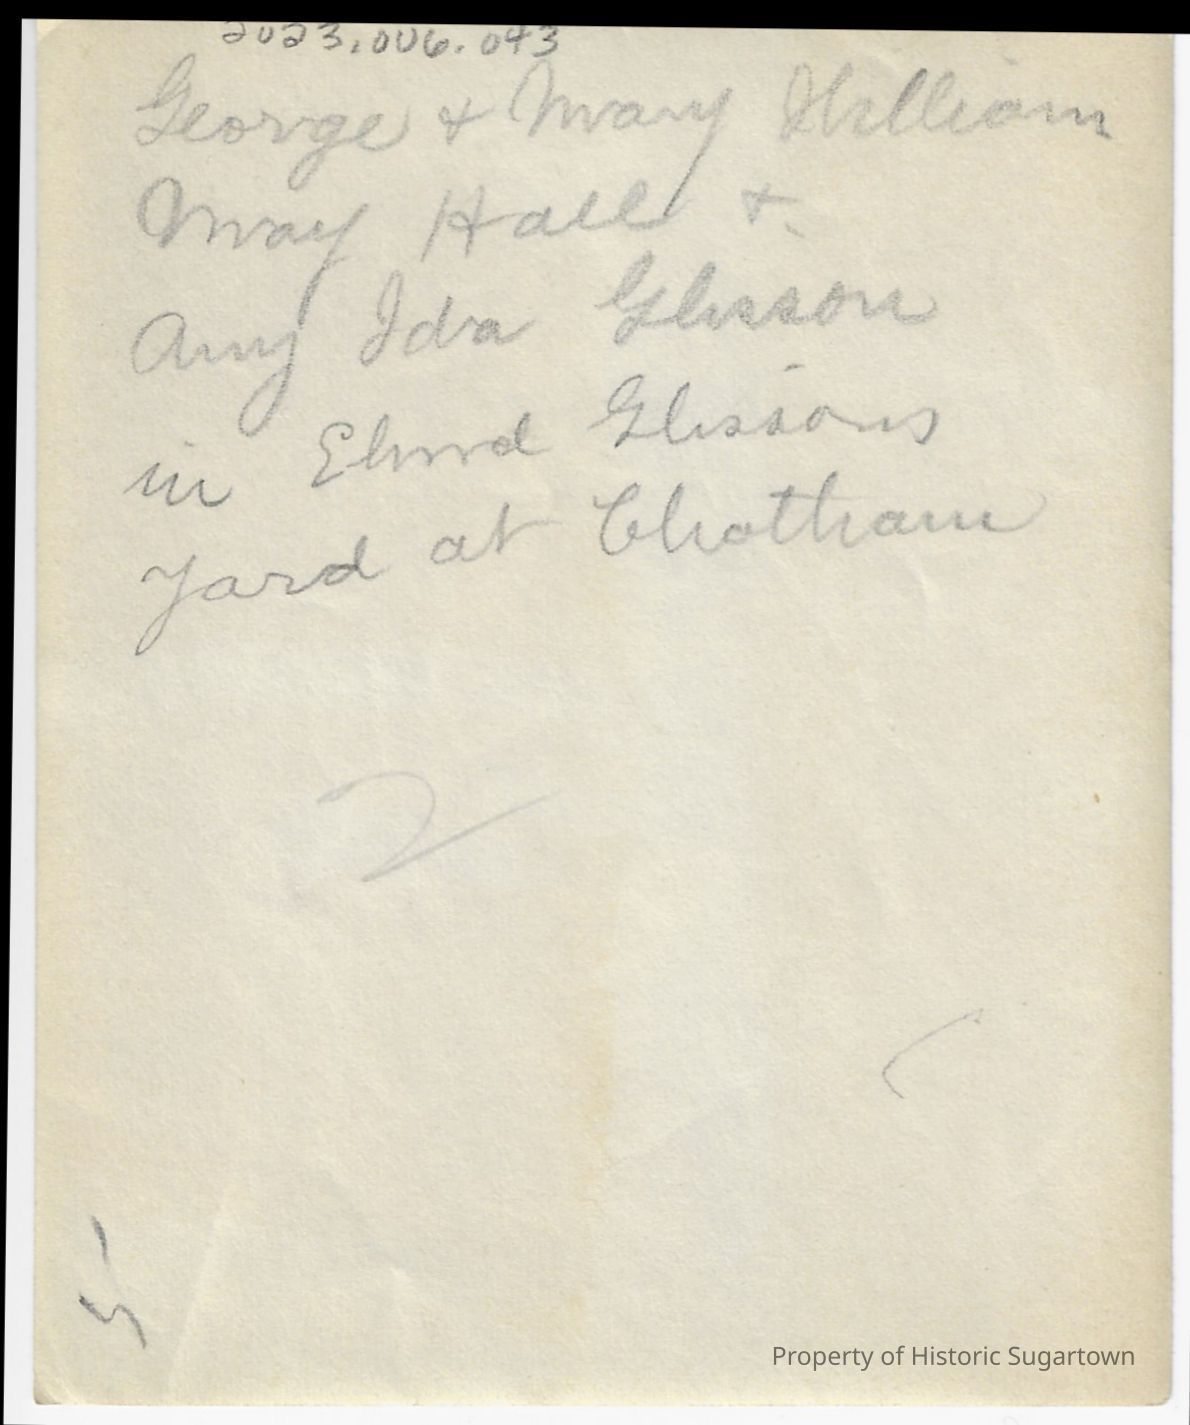 2023.006.043
George + Mary William
May Hall +
Amy Ida Glisson
in Elwod Glissons
yard at Chatham
2
Property of Historic Sugartown